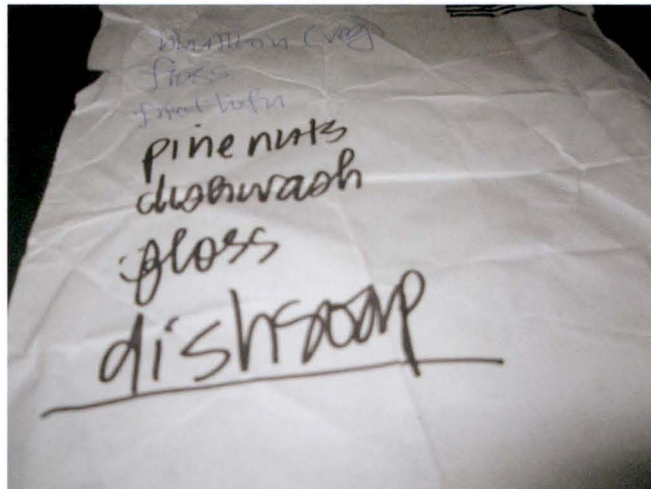 (veg)
floss
fried tofu
pine nuts
dishwash
floss
dishsoap